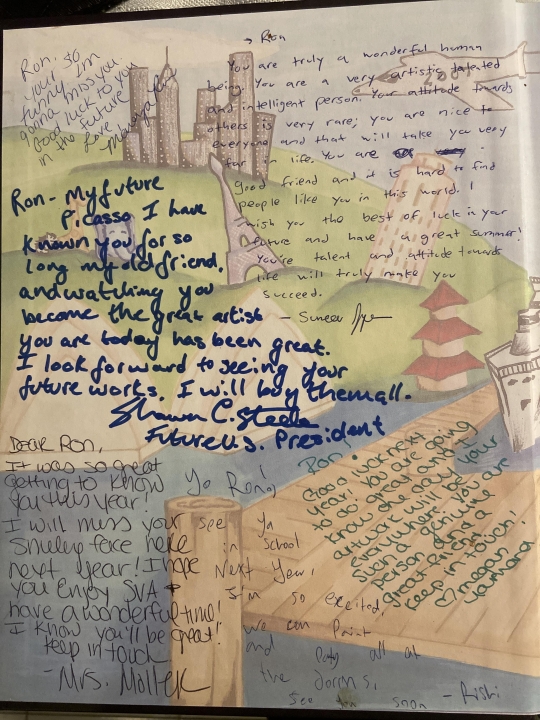 Ron. So
your funny I'm
gonna miss you.
Good luck to you
in the future
Love
→ Ron
You are truly a wonderful human
being. You are a very artistic, talented
and intelligent person. Your attitude towards
others is very rare; you are nice to
everyone and that will take you very
far in life. You are
good friend and it is hard to find
people like you in this world. I
wish you the best of luck in your
future and have a great summer!
You're talent and attitude towards
life will truly make you
succeed.
2001
Ron - My future
Picasso I have
known you for so
long my old friend,
and watching you
become the great artist
you are today has been great.
I look forward to seeing your
future works. I will buy them all.
Shawn C. Steele
Future U.S. President
Dear Ron,
It was so great
getting to know
you this year!
I will miss your
smiley face here
next year! I hope
you enjoy SVA &
have a wonderful time!
I know you'll be great!
Keep in touch
- Mrs. Moller
Yo Ron,!
See ya
in school
Next Year,
I'm so excited,
we can paint
and party all at
the dorms,
see then soon
- Rishi
Ron.
Good luck next
year! You are going
to do great and I
know one day your
artwork will be
everywhere. You are
such a genuine
person and a
great friend.
Keep in touch!
♡ Megan